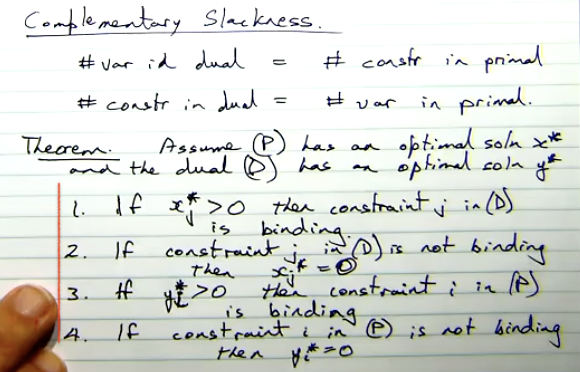 Complementary Slackness.
# var id dual = # constr in primal
# constr in dual = # var in primal.
Theorem. Assume (P) has an optimal soln x*
and the dual (D) has an optimal soln y*
1. If xj* > 0 then constraint j in (D)
is binding.
2. If constraint j in (D) is not binding
then xj* = 0
3. If yi* > 0 then constraint i in (P)
is binding
4. If constraint i in (P) is not binding
then yi* = 0